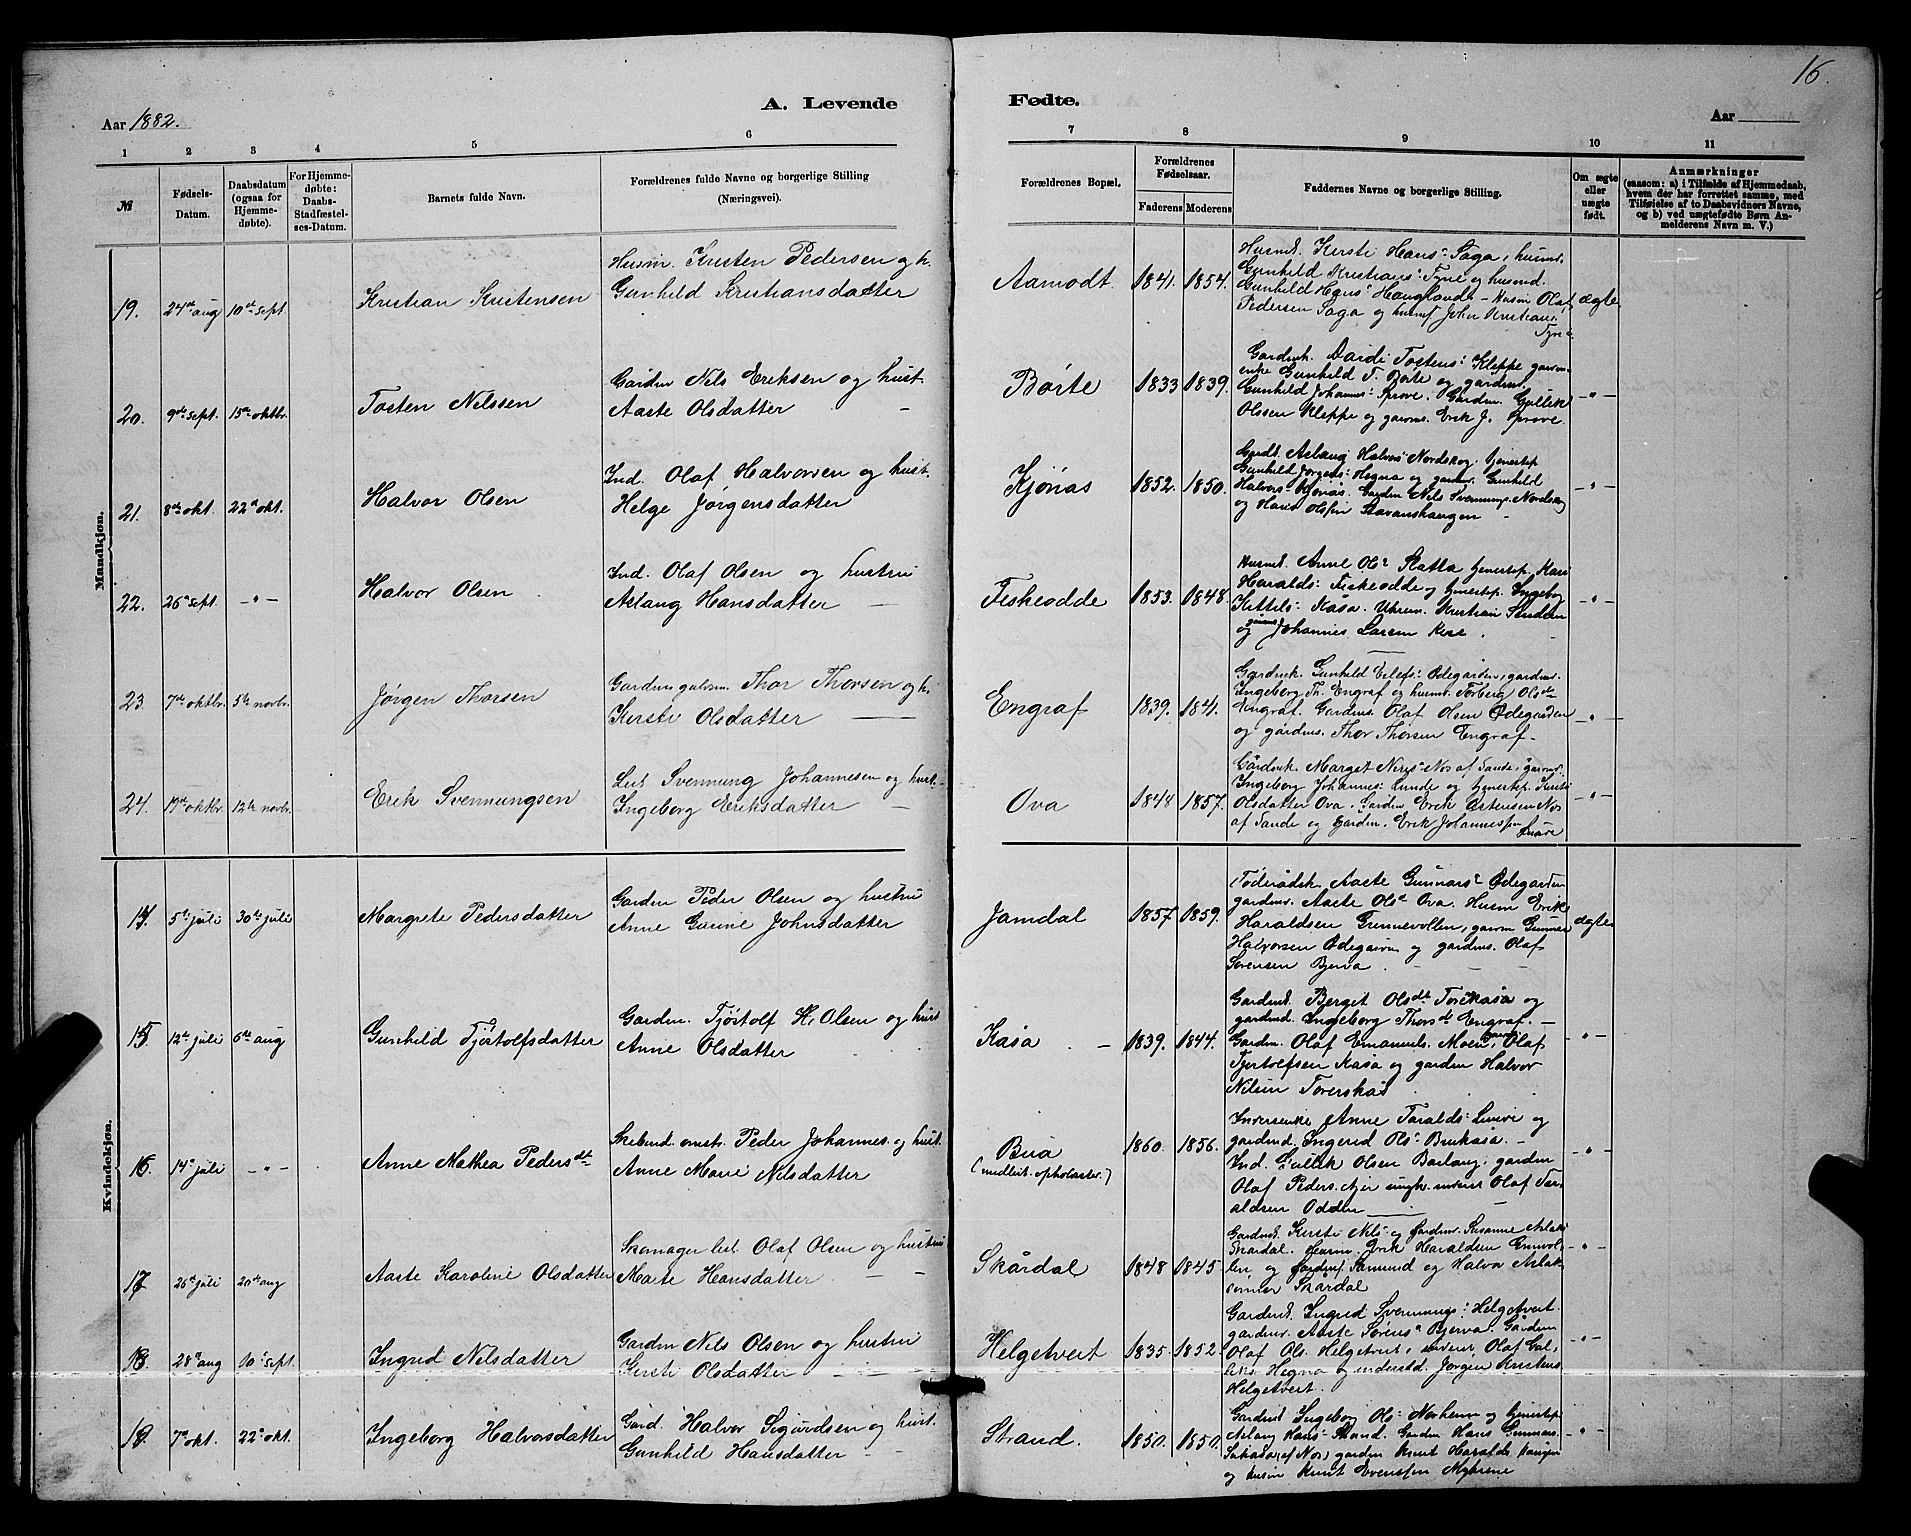 16.
A. Levende Fødte.
Aar 1882. Aar
1 2 3 4 5 6 7 8 9 10 11
№ Fødsels-Datum. Daabsdatum (ogsaa for Hjemmedøbte). For Hjemmedøbte: Daabs-Stadfæstelses-Datum. Barnets fulde Navn. Forældrenes fulde Navne og borgerlige Stilling (Næringsvei). Forældrenes Bopæl. Forældrenes Fødselsaar. Faderens Moderens Faddernes Navne og borgerlige Stilling. Om ægte eller uægte født. Anmærkninger (saasom: a) i Tilfælde af Hjemmedaab, hvem der har forrettet samme, med Tilføielse af to Daabsvidners Navne, og b) ved uægtefødte Børn Anmelderens Navn m. V.)
Mandkjøn.
19. 24de aug 10de sept. Kristian Kristensen
Husm. Kristen Pedersen og h.
Gunhild Kristiansdatter
Aamodt. 1841. 1854.
Husmd. Kersti Hans: Saga, husmd.
Gunhild Kristians: Tyne og husmd.
Gunhild Hans: Hauglandk - Husm Olaf
Pedersen Saga og husmf John Kristians.
Tyne
ægte
20. 9de sept. 15de oktbr. Tosten Nilssen
Garden Nils Eriksen og hust.
Aaste Olsdatter
Børte 1833 1839.
Gardmk. Dardi Tostens: Kleppe gaven
enke Gunhild T. Børte og gardmd.
Gunhild Johannes: Sprove. Garden. Gullik
Olssen Kleppe og gavms. Erik J. Sprove.
-"-
21. 8de okt. 22de okt. Halvor Olsen
Ind. Olaf Halvorsen og hust.
Helge Jørgensdatter
Kjønas 1852. 1850.
Aslaug Halvors: Nordskog. tjenestep
Gunhild Jørgens: Hegna og gardmd. Gunhild
Halvors: Kjonas. Garden Nils Svennungs. Nordskog
og Hans Olssen Bavanshaugen
-"-
22. 26de sept. -"- Halvor Olsen
Ind. Olaf Olsen og hustru
Aslaug Hansdatter
Fiskeodde 1853. 1848.
Husmd. Anne Ols: Slatta tjenestep. Kari
Haralds: Fiskeodde og tjenestep. Ingeborg
Kittels: Kasa. Kristian
og Johannes Larsen
-"-
23. 7de oktbr. 5te novbr. Jørgen Thorsen
Garden Thor Thorsen og h.
Kersti Olsdatter
Engraf 1839. 1841.
Gardmk. Gunhild Eilefs: Ødegarden, gardmd.
Ingeborg Th. Engraf og husmd. Torberg Olsdt
Engraf. Gardms. Olaf Olsen Ødegarden
og gårdms. Thor Thorsen Engraf.
-"-
24. 19de oktbr. 12te novbr. Erik Svennungsen
Leil. Svennung Johannesen og hust.
Ingeborg Eriksdatter
Ova 1848 1857.
Gårdmk. Marget Neris: Nor af Sande, gavmd.
Ingeborg Johannes: Lunde og tjenestep. Kersti
Olsdatter Ova. Garden Erik Østensen Nor
af Sande og Garden. Erik Johannessen
-"-
Kvindekjøn.
14. 5te juli 30te juli Margrete Pedersdatter
Garden Peder Olsen og hustru
Anne Gurine Johnsdatter
Jamdal 1857. 1859.
Føderådsk. Aaste Gunnars: Ødegarden
gardmd. Aaste Ols: Ova. Husm Erik
Haraldsen Grunnevollen, gavm Gunnar
Halvorsen Ødegarden og gardms. Olaf
Sørensen Bjerva.
ægte
15. 12te juli 6te aug Gunhild Tjøstolfsdatter
Garden. Tjøstolf H. Olsen og hust
Anne Olsdatter
Kåsa 1839. 1844.
Gardmd. Berget Olsdt Torekasa og
gardmd. Ingeborg Thorsdt Engraf.
Garden. Olaf Emanuels. Moen, Olaf
Tjøstolfsen Kasa og garden Halvor
Nilsen
-"-
16. 14de juli -"- Anne Mathea Pedersdt
Peder Johannes. og hust.
Anne Marie Nilsdatter
Bua 1860. 1856.
Anne Taralds: Lunde og
gardmd. Ingerid Ols: Brukasa.
Ind. Gullik Olsen Barlaug, garden
Olaf Peders. ungk. Olaf Tar,
aldsen Odden
-"-
17. 26de juli 20de aug Aaste Karoline Olsdatter
Skomager Olaf Olsen og hustru
Marte Hansdatter
Skårdal 1848 1845
Gardmd. Kersti Nils: og Susanne Aslaks:
Skardal. Erik Haraldsen
og Halvor Aslak
Skårdal
-"-
18. 28de aug 10de sept. Ingrid Nilsdatter
Garden Nils Olsen og hustru
Kersti Olsdatter
Helgetveit 1835 1852.
Gardmd. Ingrid Svennungs: Helgetveit.
gardmd. Aaste Sørens: Bjerva. Gården
Olaf Ols. Helgetveit, Olaf
Hegna og Jørgen Kristens.
Helgetveit.
-"-
19. 7de okt. 22de okt. Ingeborg Halvorsdatter
Gard. Halvor Sigurdsen og hust.
Gunhild Hansdatter
Strand. 1850. 1850.
Gardmd. Ingeborg Ols: Norheim og tjenestep
Aslaug Hans: Strand. Garden Hans Gunnars.
(af Nor) garden Knut Haralds.
og husm Knut Evenssen Myhrene
-"-